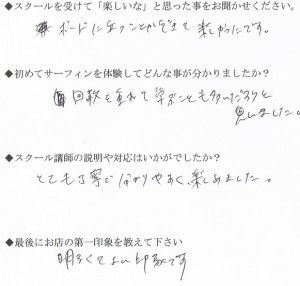 ◆スクールを受けて「楽しいな」と思った事をお聞かせください。
ボードに立つことができて楽しかったです。
◆初めてサーフィンを体験してどんな事が分かりましたか？
回数を重ねて学ぶことも多いだろうと
思いました。
◆スクール講師の説明や対応はいかがでしたか？
とても丁寧で分かりやすく、楽しめました。
◆最後にお店の第一印象を教えて下さい
明るくてよい印象です